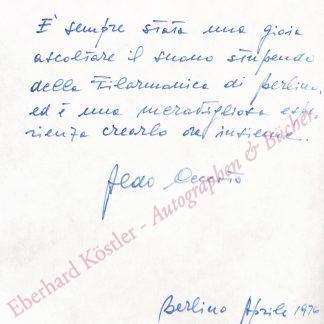 E' sempre stata una gioia
ascoltare il suono stupendo
della Filarmonica di Berlino,
ed è una meravigliosa espe-
rienza crearlo ora insieme.
Aldo Ceccato
Eberhard Köstler - Autographen & Bücher
Berlino Aprile 1976